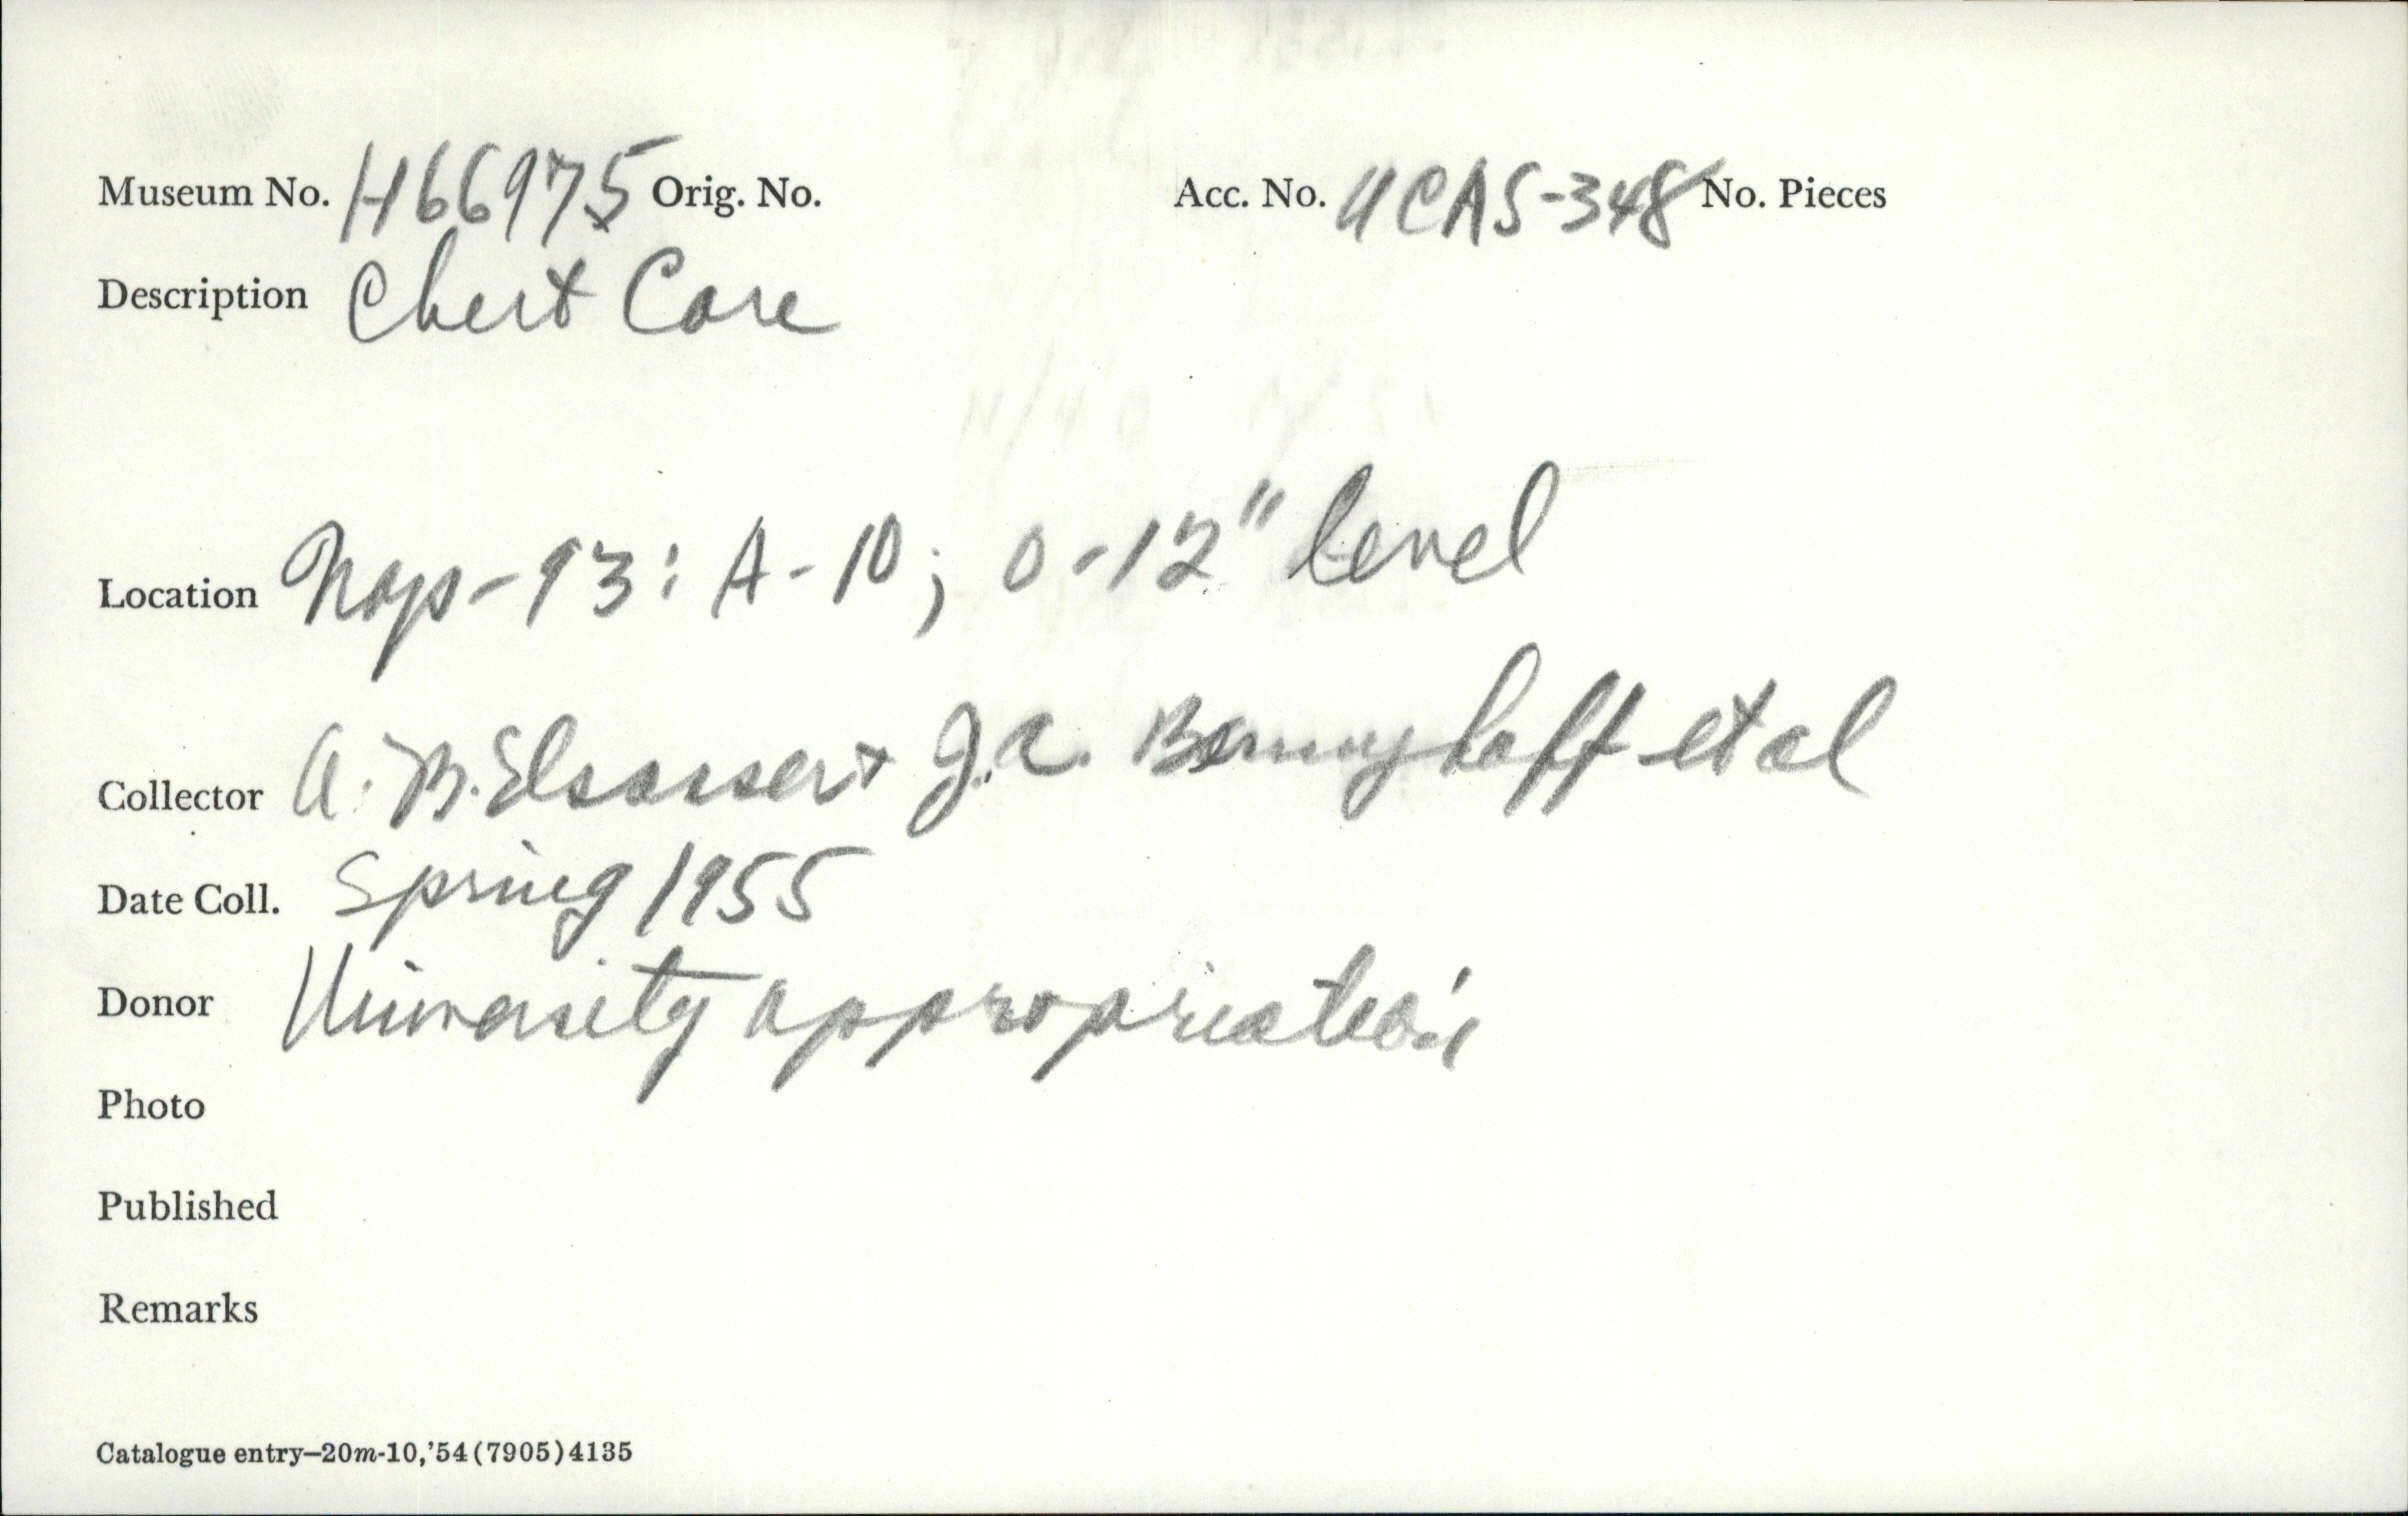 Museum No. H66975 Orig. No. Acc. No. UCAS-348 No. Pieces
Description Chert Core
Location Nap-93: A-10; 0-12" level
Collector A. B. Elsasser + J.A. Bennyhoff et al
Date Coll. Spring 1955
Donor University appropriation
Photo
Published
Remarks
Catalogue entry—20m-10,'54(7905)4135